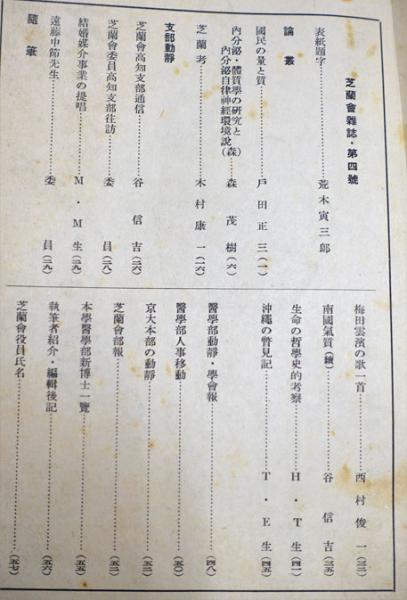 芝蘭會雜誌・第四號
表紙題字…………荒木寅三郎
論叢
國民の量と質…………戸田正三(一)
內分泌・體質學の硏究と
內分泌自律神經環境說(森)…………森茂樹(六)
芝蘭考…………木村康一(二六)
支部動靜
芝蘭會高知支部通信…………谷信吉(二六)
芝蘭會委員高知支部往訪…………委員(二八)
結婚媒介事業の提唱…………M・M生(二九)
遠藤中節先生…………委員(二九)
隨筆
梅田雲濱の歌一首…………西村俊一(三三)
南國氣質(續)…………谷信吉(三五)
生命の哲學史的考察…………H・T生(四一)
沖繩の瞥見記…………T・E生(四五)
醫學部動靜・學會報…………(四八)
醫學部人事移動…………(五〇)
京大本部の動靜…………(五二)
芝蘭會部報…………(五二)
本學醫學部新博士一覽…………(五五)
執筆者紹介・編輯後記…………(五六)
芝蘭會役員氏名…………(五七)